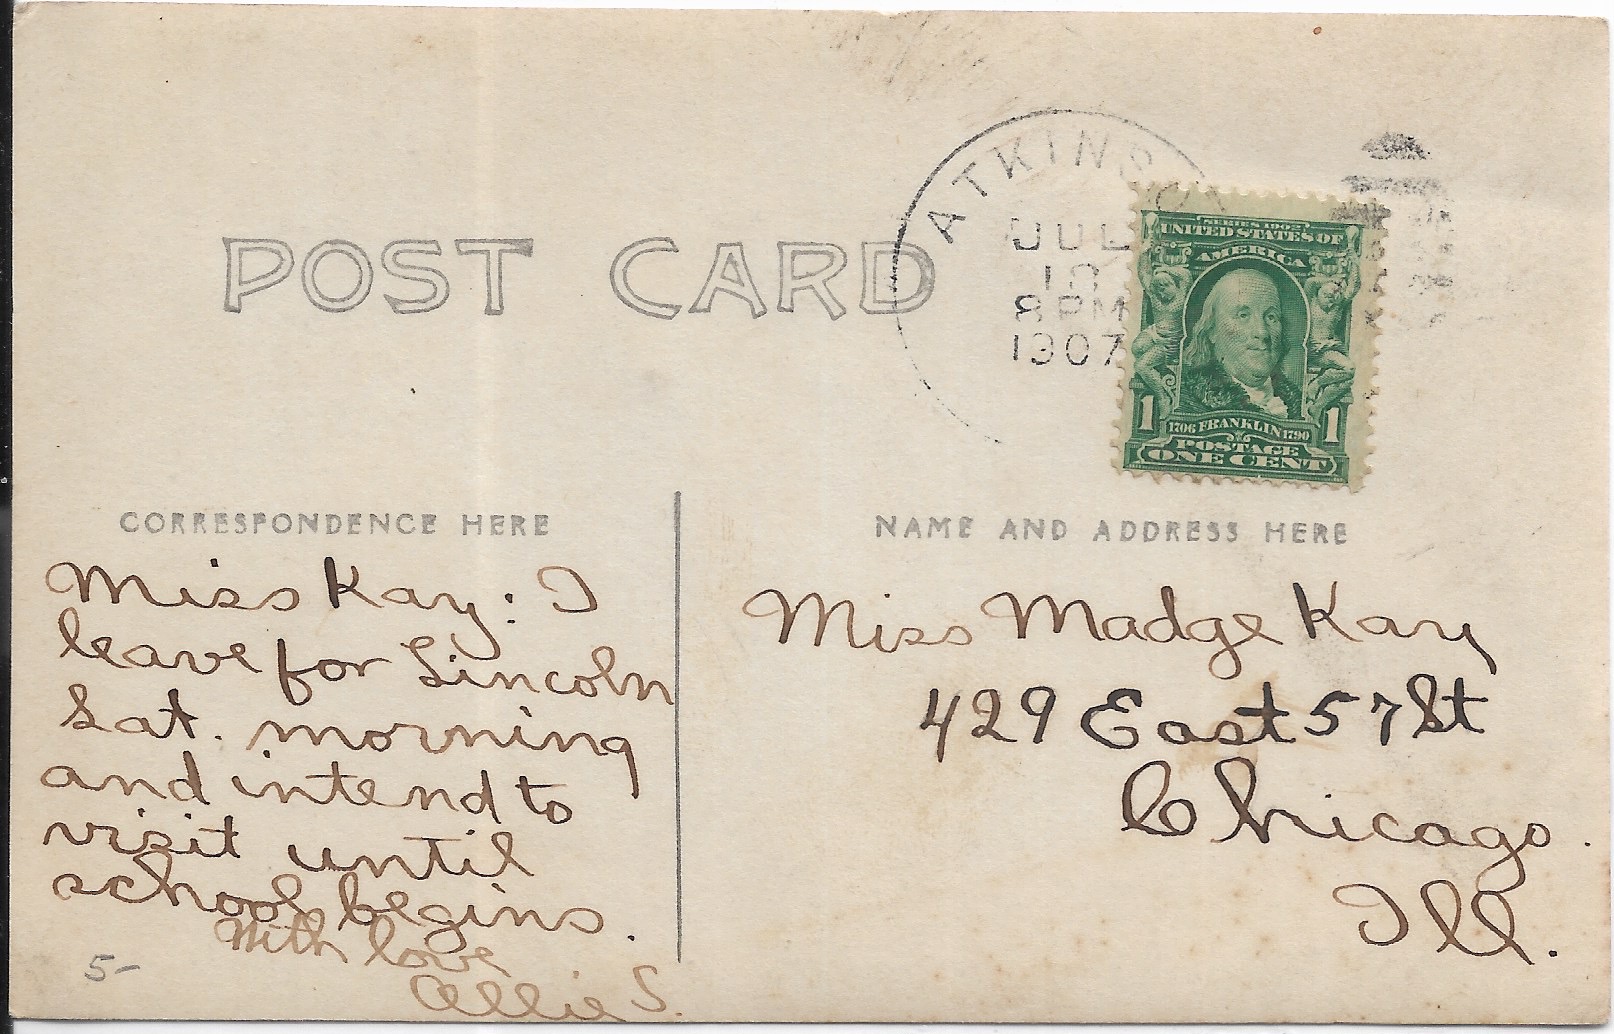 POST CARD
ATKINSO
JUL
8 PM
1907
SERIES 1902
UNITED STATES OF
AMERICA
1 1
1706 FRANKLIN 1790
POSTAGE
ONE CENT
CORRESPONDENCE HERE
Miss Kay: I
leave for Lincoln
Sat. morning
and intend to
visit until
school begins.
With love
Allie S.
5-
NAME AND ADDRESS HERE
Miss Madge Kay
429 East 57 St
Chicago.
Ill.